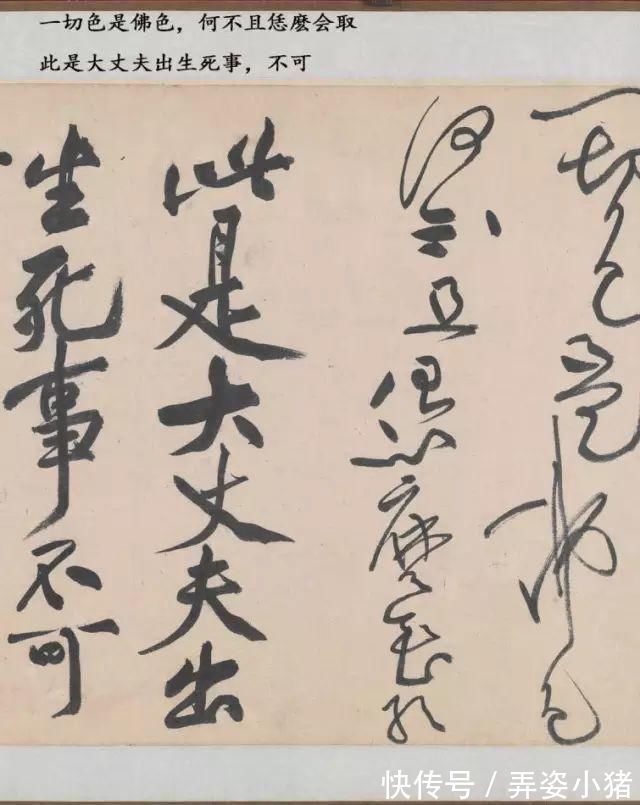 一切色是佛色，何不且恁麽会取
此是大丈夫出生死事，不可
一切色是佛色
何不且恁麽会取
此是大丈夫出
生死事不可
快传号／弄姿小猪